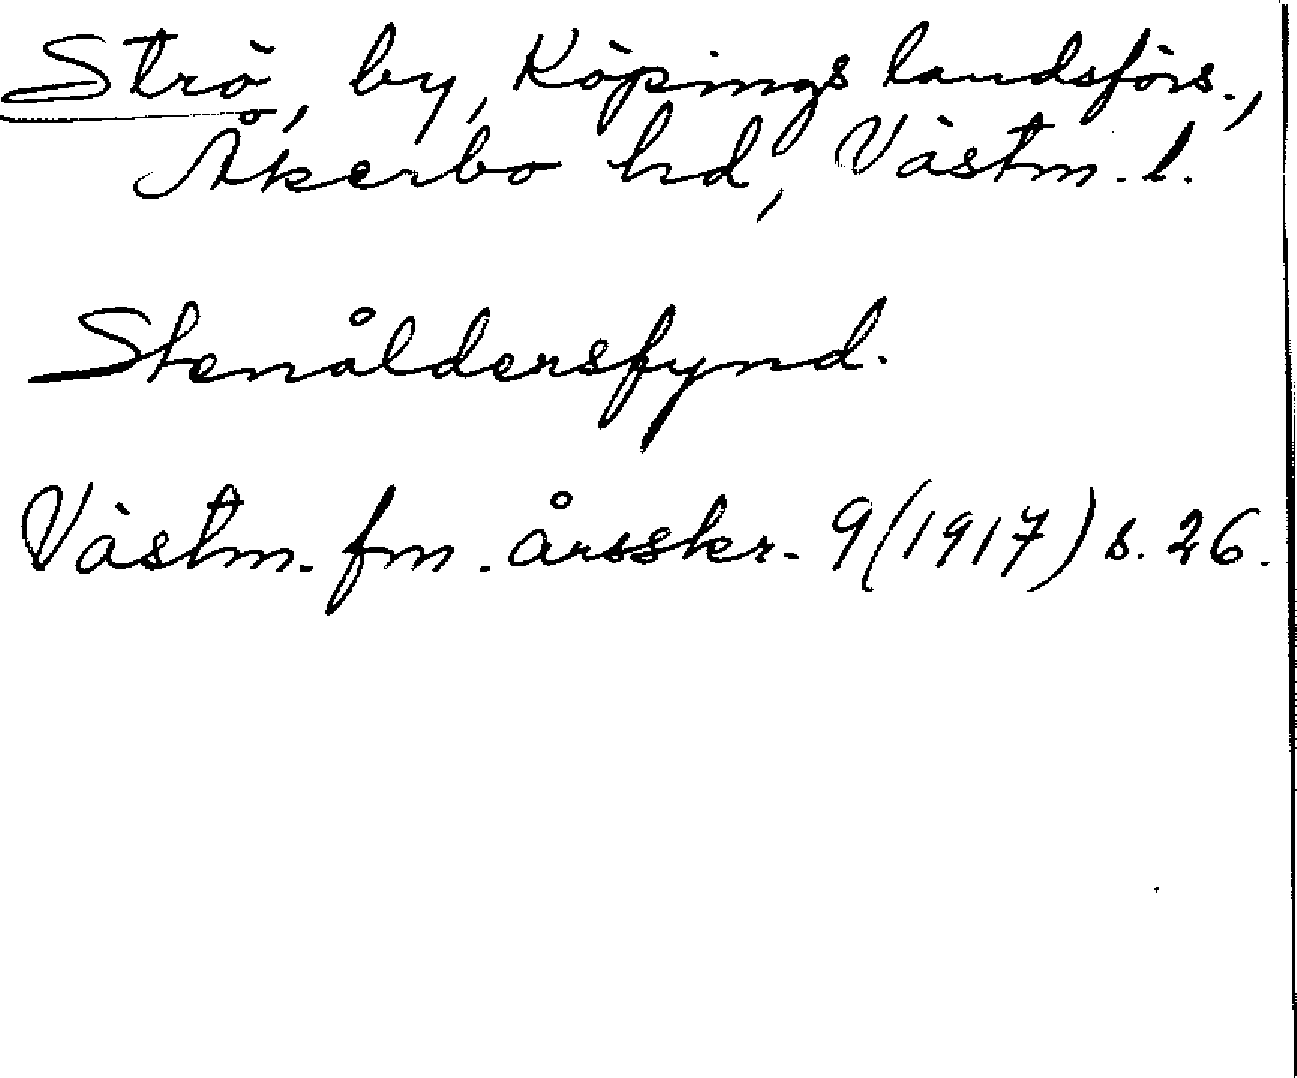 Strö, by, Köpings landsförs.,
Åkerbo hd, Västm. l.
Stenåldersfynd.
Västm. fm. årsskr. 9 (1917) s. 26.